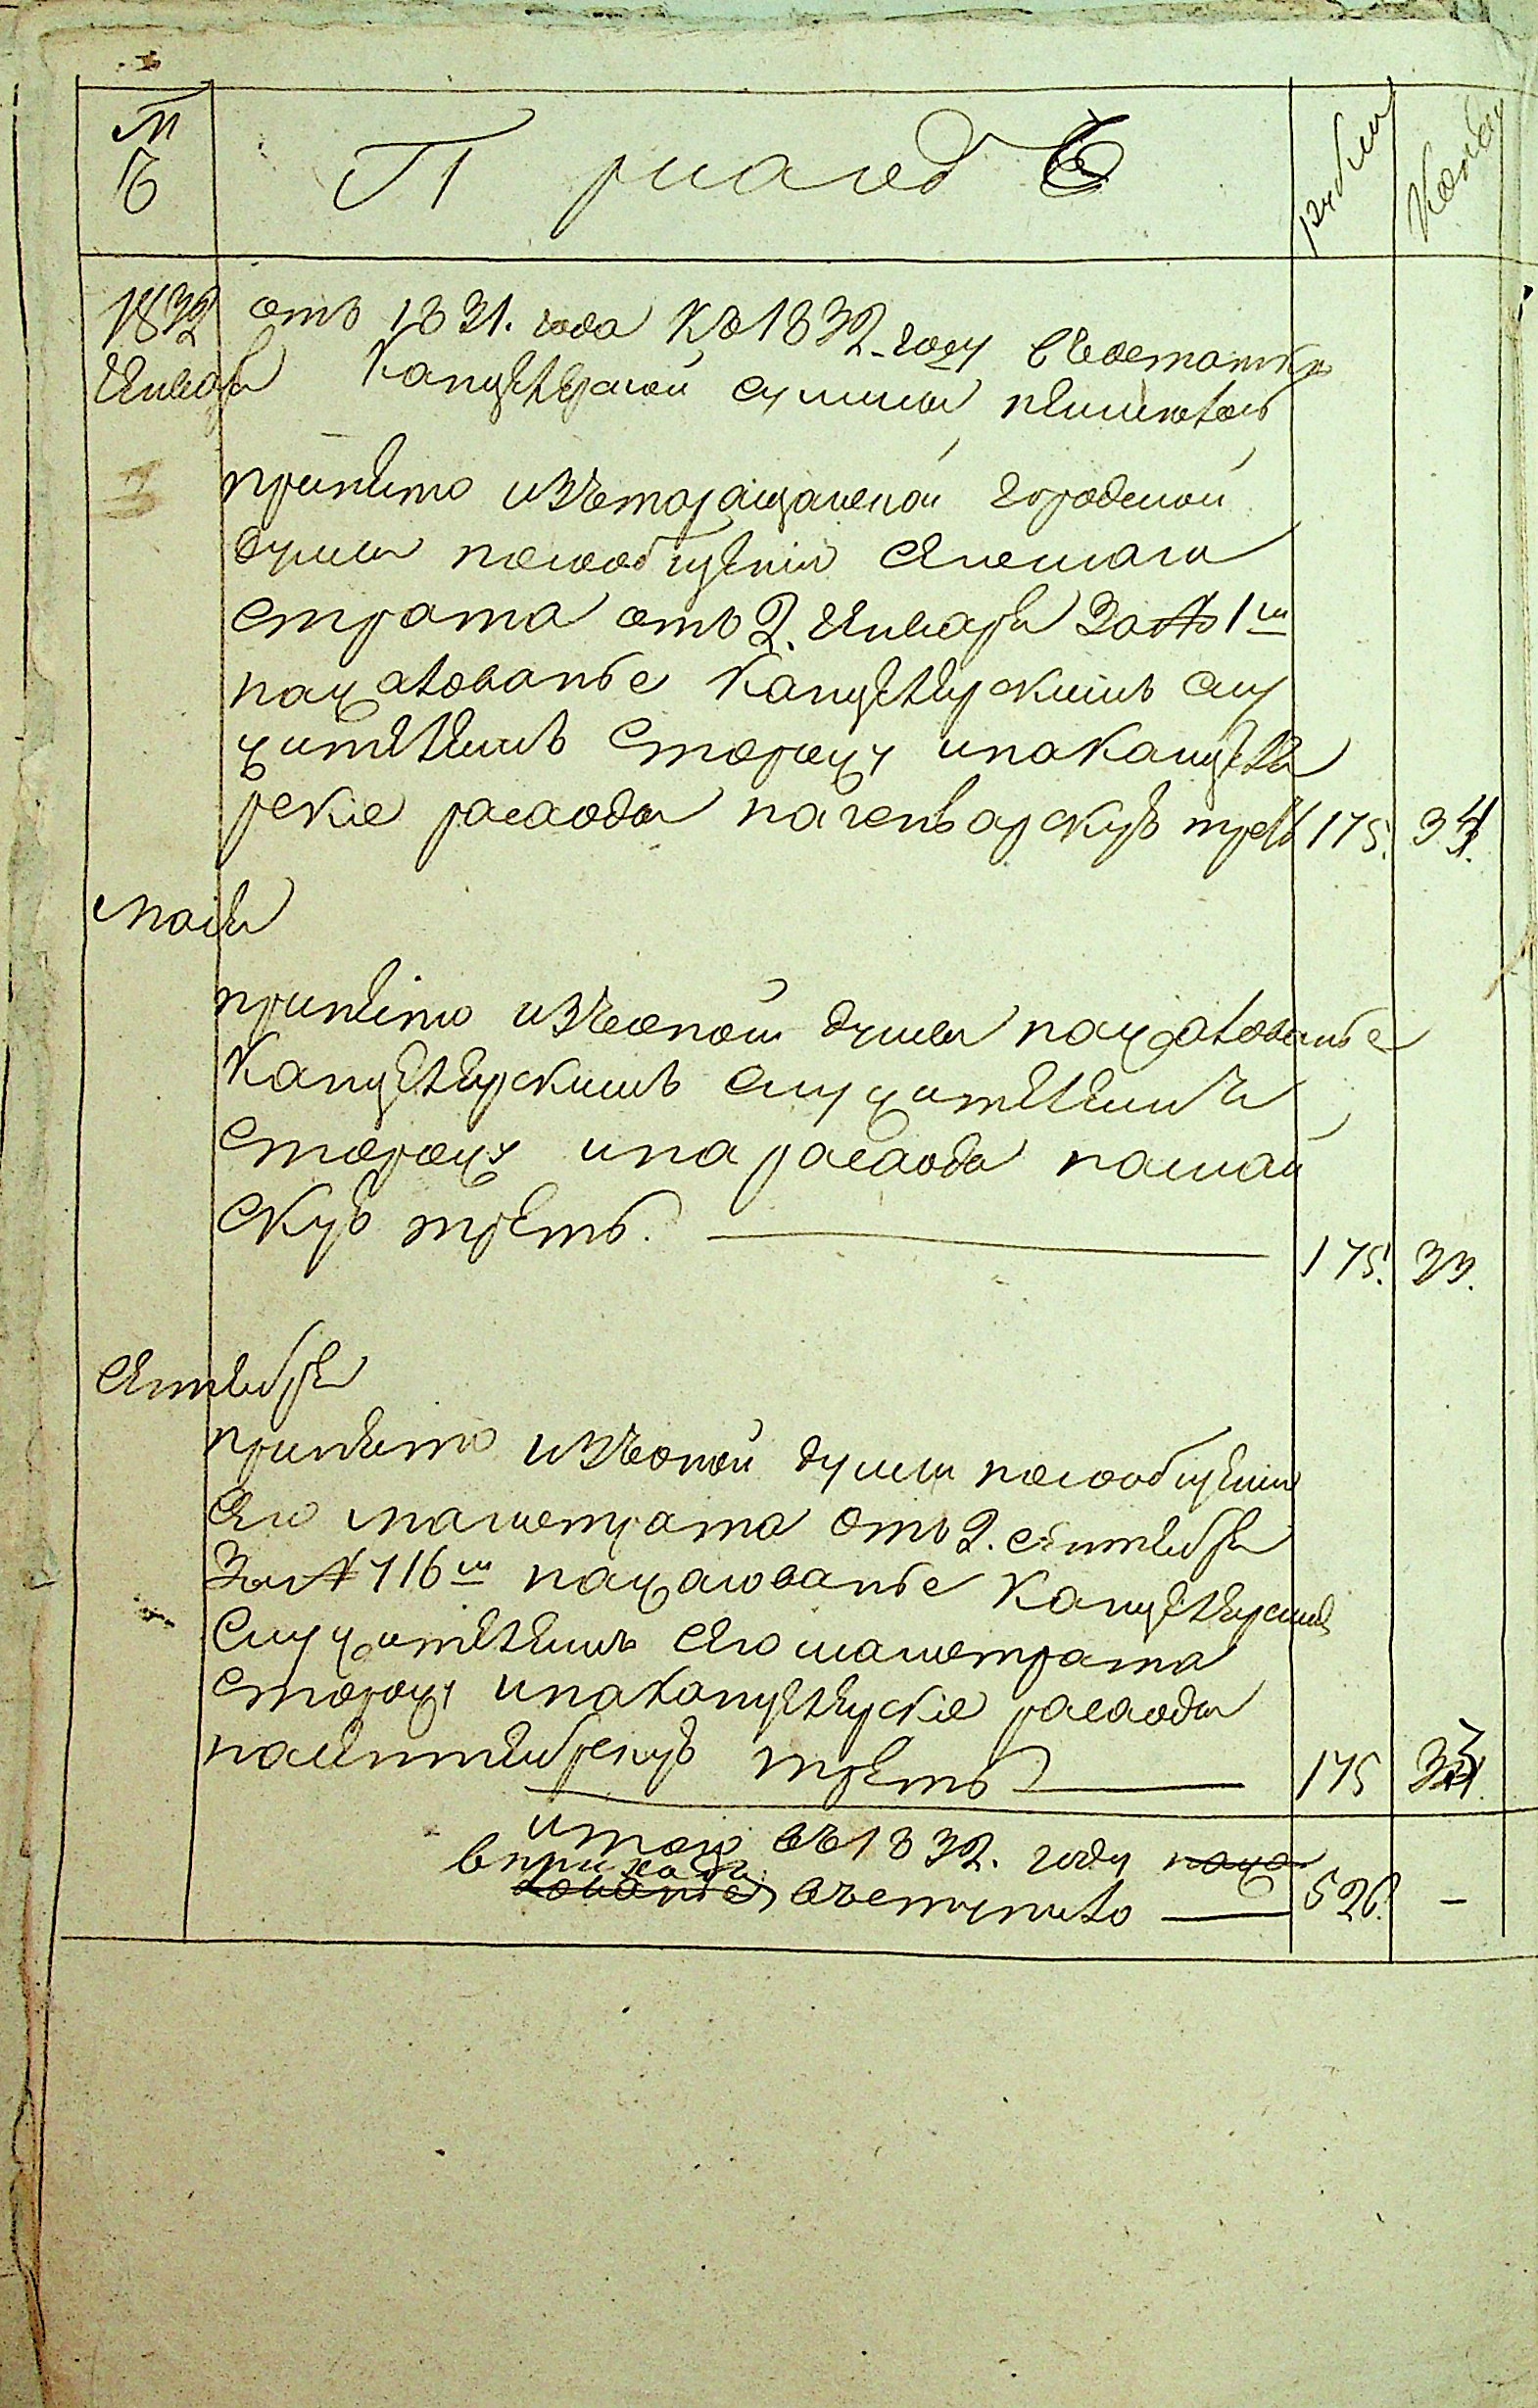 М
Ч
Приходъ
рубли
Копѣи
1832 отъ 1831. года къ 1832. году въостатке
Генваря Канцелярской суммы неимелось
принето изъ городской
думы посообщению сего маги
страта отъ 2. Генваря За № 1м
нажалованье Канцелярскимъ слу
жителямъ Сторожу инаканцеля
рские расходы нагенварскую треть 175. 34.
маия
принето изъоной думы нажалованье
Канцелярскимъ служителямъ
Сторожу инарасходы намай
скую треть. 175. 33.
Сентебря
принето изъоной думы посообщению
сего магистрата отъ 2. сентебря
За № 116м нажалованье Канцелярскимъ
Служителямъ сего магистрата
сторожу инаканцелярские расходы
насентебрскую треть 175 33.
итого въ 1832. году нажа
вприходъ
лованье въступило 526. —